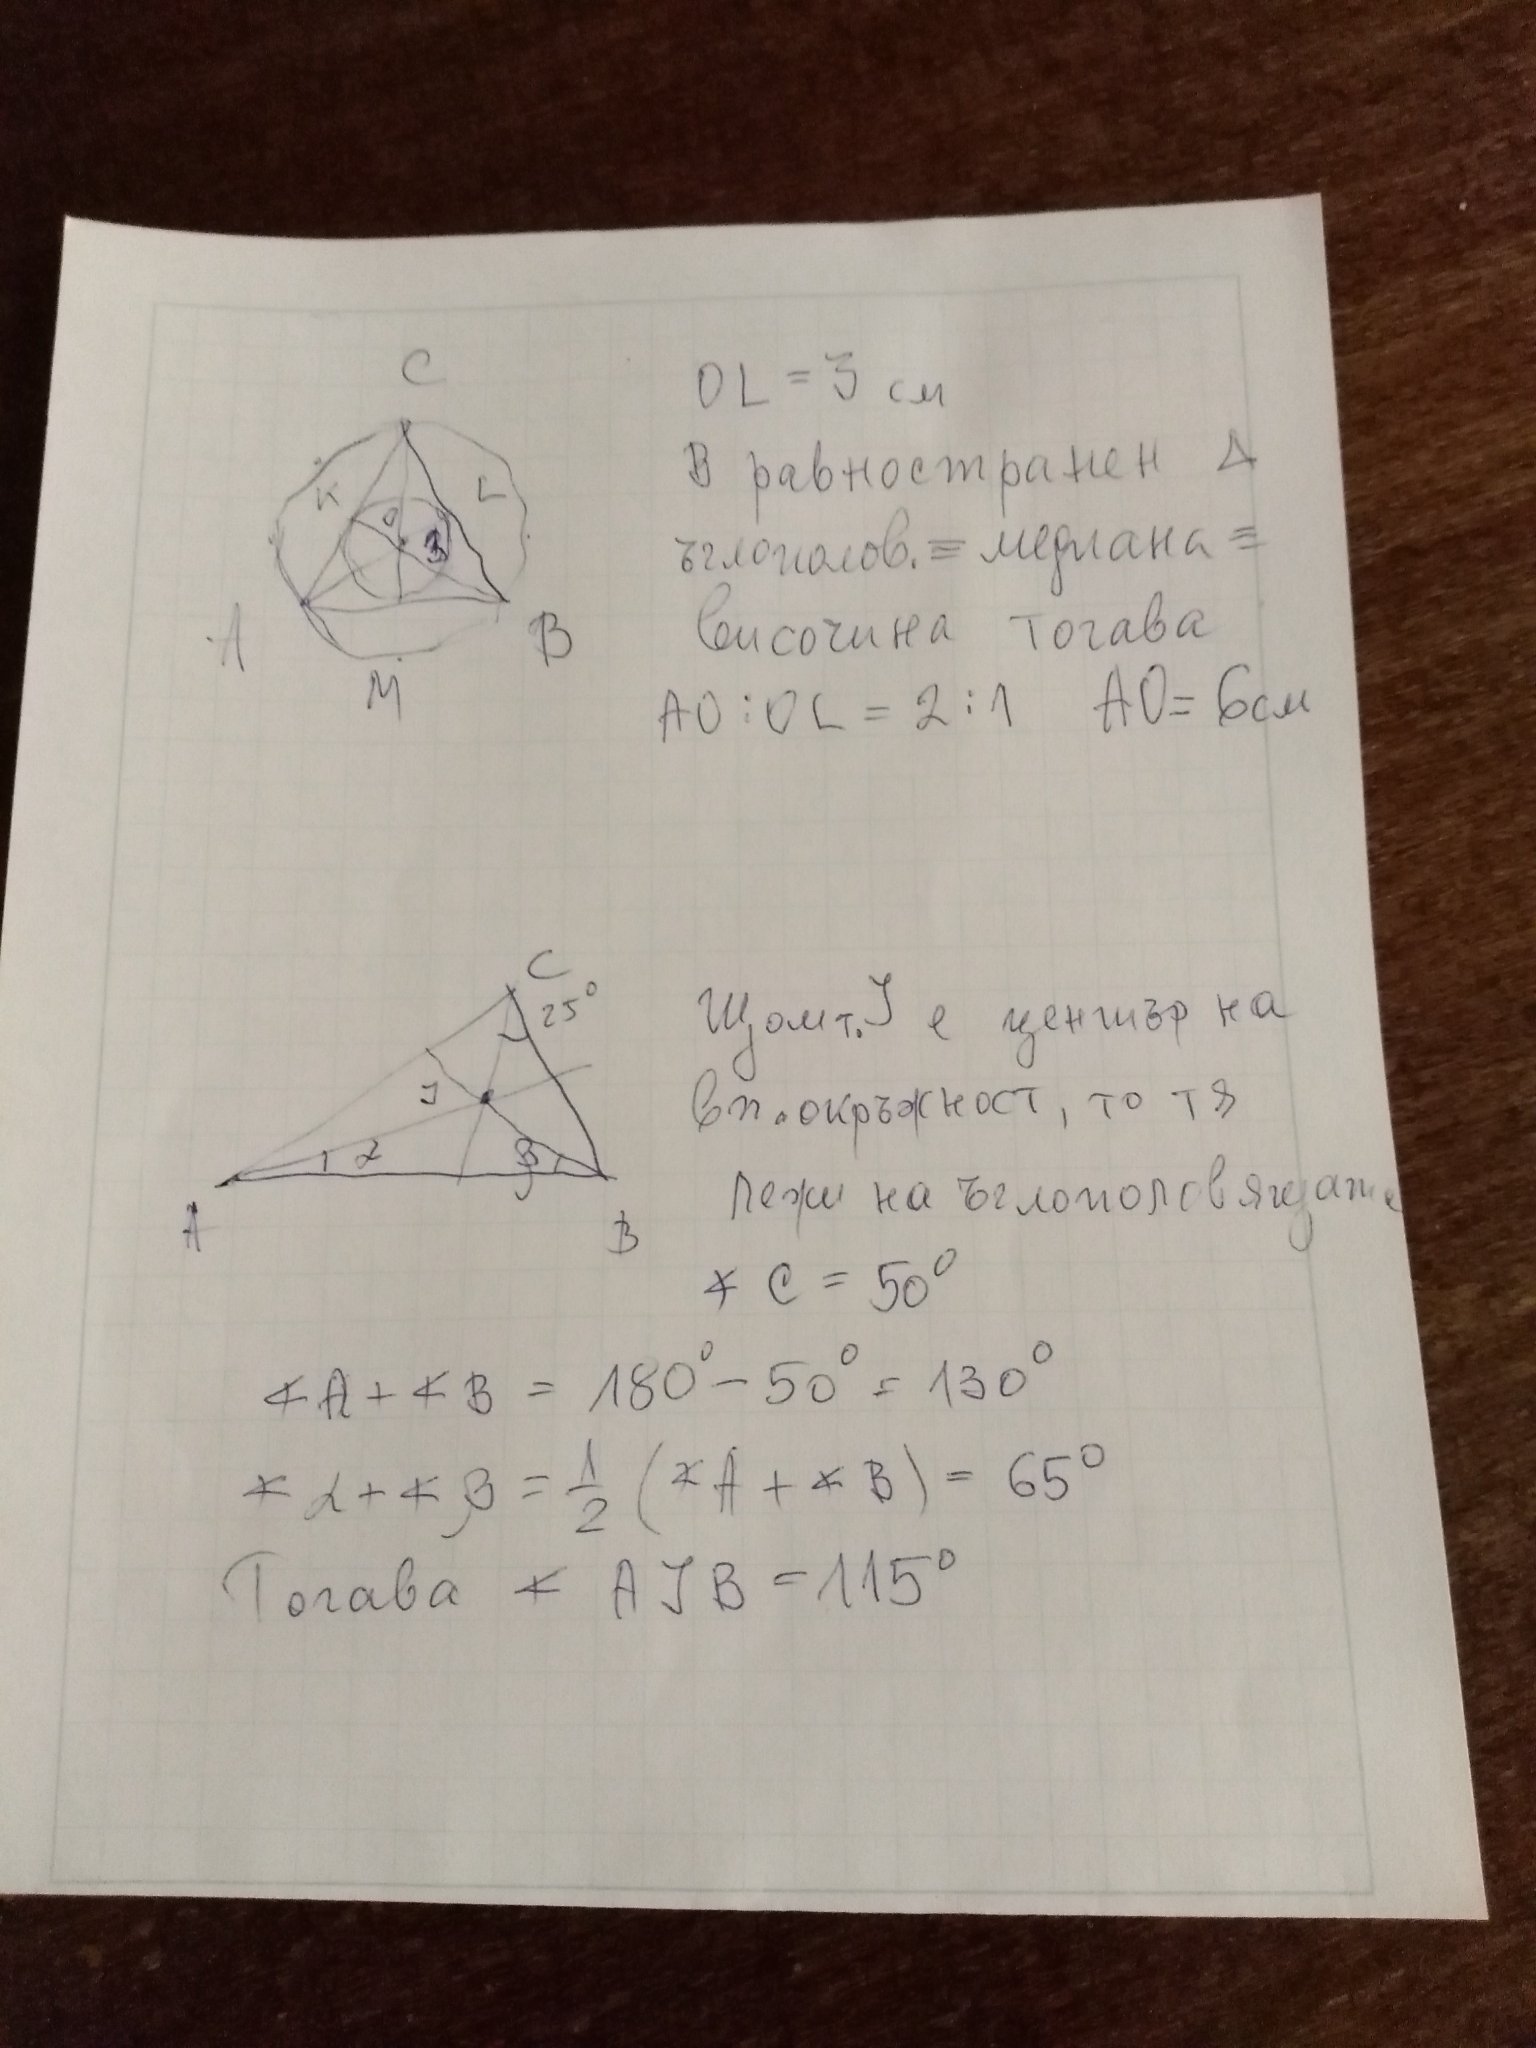 C
OL = 3 см
K
O
L
3
В равностранен Δ
ъглополов. ≡ медиана ≡
A
B
M
височина тогава
AO : OL = 2 : 1 AO = 6 см
C
25°
J
α
β
A
B
Щом т. J е център на
вп. окръжност, то тя
лежи на ъглополовящите
∢ C = 50°
∢ A + ∢ B = 180° - 50° = 130°
∢ α + ∢ β = 1/2 (∢ A + ∢ B) = 65°
Тогава ∢ AJB = 115°